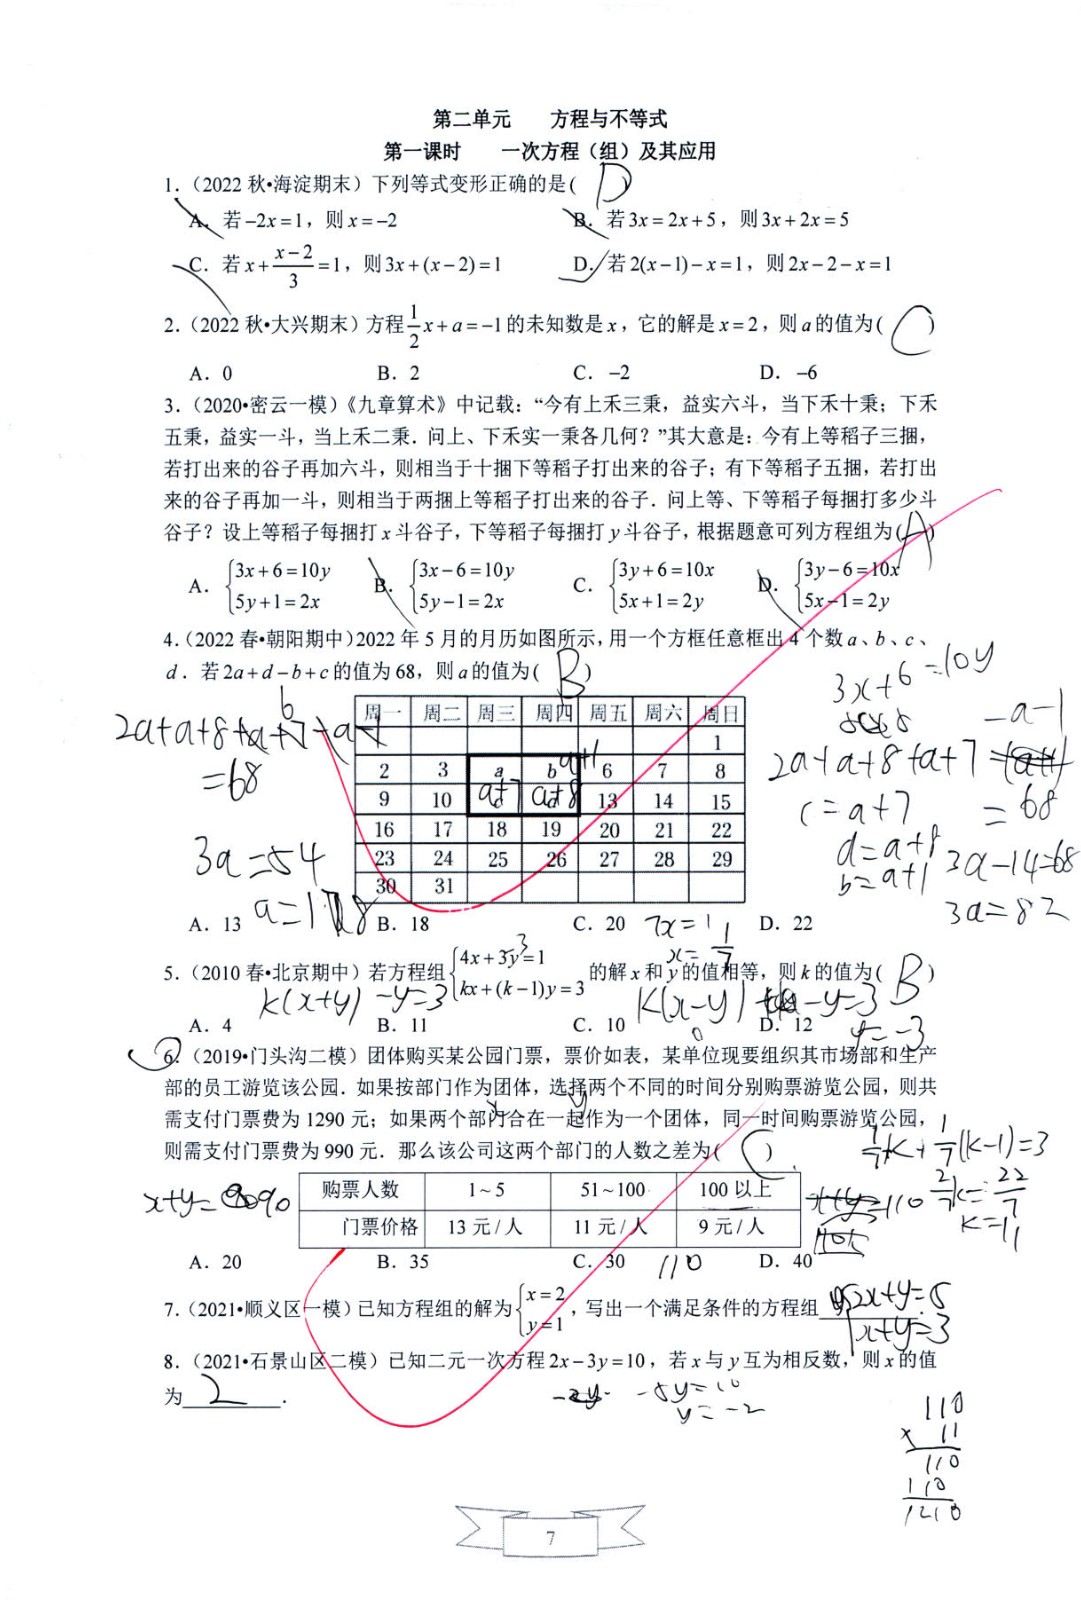 第二单元 方程与不等式
第一课时 一次方程（组）及其应用
1．（2022 秋•海淀期末）下列等式变形正确的是( D )
A．若 −2x=1，则 x=−2 B．若 3x=2x+5，则 3x+2x=5
C．若 x+(x−2)/3=1，则 3x+(x−2)=1 D．若 2(x−1)−x=1，则 2x−2−x=1
2．（2022 秋•大兴期末）方程 1/2 x+a=−1 的未知数是 x，它的解是 x=2，则 a 的值为( C )
A．0 B．2 C．−2 D．−6
3．（2020•密云一模）《九章算术》中记载：“今有上禾三秉，益实六斗，当下禾十秉；下禾
五秉，益实一斗，当上禾二秉．问上、下禾实一秉各几何？”其大意是：今有上等稻子三捆，
若打出来的谷子再加六斗，则相当于十捆下等稻子打出来的谷子；有下等稻子五捆，若打出
来的谷子再加一斗，则相当于两捆上等稻子打出来的谷子．问上等、下等稻子每捆打多少斗
谷子？设上等稻子每捆打 x 斗谷子，下等稻子每捆打 y 斗谷子，根据题意可列方程组为( A )
A．{3x+6=10y B．{3x−6=10y C．{3y+6=10x D．{3y−6=10x
5y+1=2x 5y−1=2x 5x+1=2y 5x−1=2y
4．（2022 春•朝阳期中）2022 年 5 月的月历如图所示，用一个方框任意框出 4 个数 a、b、c、
d．若 2a+d−b+c 的值为 68，则 a 的值为( B )
3x+6=10y
周一 周二 周三 周四 周五 周六 周日
1
2 3 a b a+1 6 7 8
9 10 a+7 a+8 13 14 15
16 17 18 19 20 21 22
23 24 25 26 27 28 29
30 31
=68
3a=54
−a−1
2a+a+8+a+7
=68
c=a+7
d=a+8
b=a+1
3a−14=68
3a=82
A．13 B．18 C．20 D．22
7x=1
x=1/7
5．（2010 春•北京期中）若方程组{4x+3y=1 的解 x 和 y 的值相等，则 k 的值为( B )
kx+(k−1)y=3
k(x+y)−y=3
k(x−y)
−y=3
y=−3
A．4 B．11 C．10 D．12
6．（2019•门头沟二模）团体购买某公园门票，票价如表，某单位现要组织其市场部和生产
部的员工游览该公园．如果按部门作为团体，选择两个不同的时间分别购票游览公园，则共
需支付门票费为 1290 元；如果两个部门合在一起作为一个团体，同一时间购票游览公园，
则需支付门票费为 990 元．那么该公司这两个部门的人数之差为( C )
1/7k+1/7(k−1)=3
2/7k=22/7
k=11
购票人数 1~5 51~100 100 以上
门票价格 13 元/人 11 元/人 9 元/人
x+y=
x+y=110
A．20 B．35 C．30 D．40
110
7．（2021•顺义区一模）已知方程组的解为{x=2，写出一个满足条件的方程组 2x+y=5
y=1 x+y=3
8．（2021•石景山区二模）已知二元一次方程 2x−3y=10，若 x 与 y 互为相反数，则 x 的值
为 2 ．
−5y=10
y=−2
110
× 11
110
110
1210
7